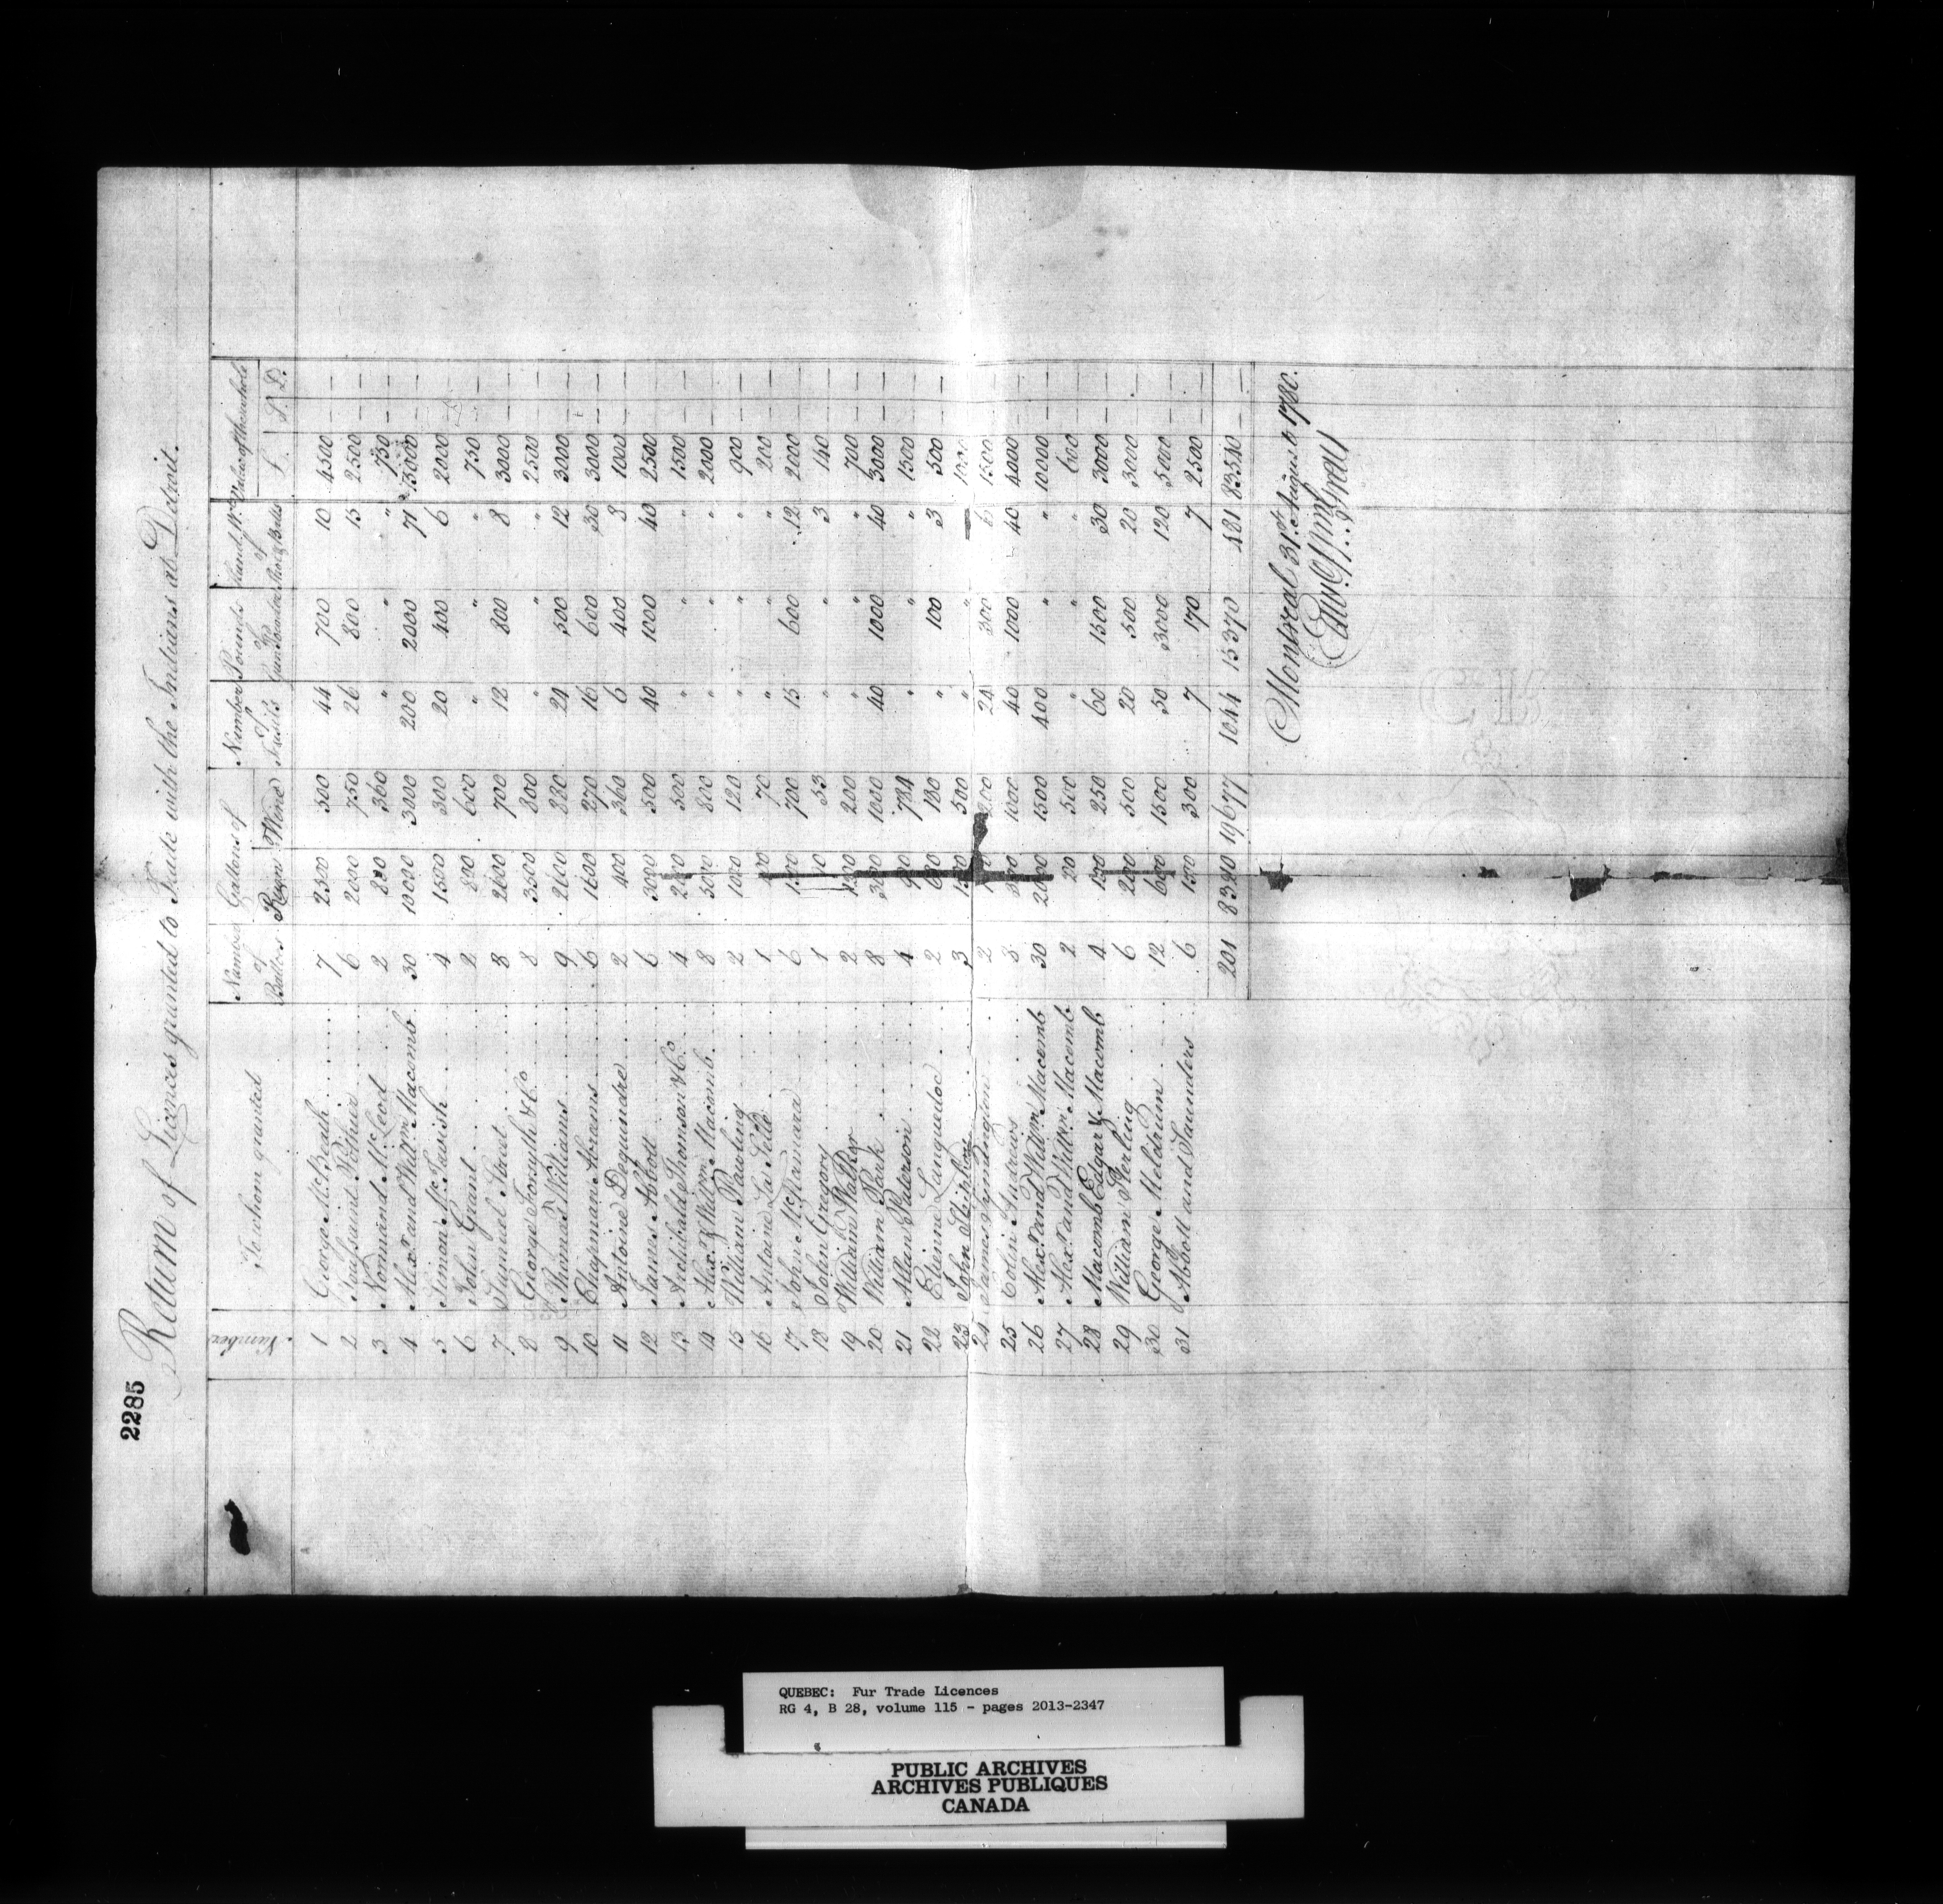 2285
Return of Licences granted to Trade with the Indians at Detroit.
Number. To whom granted Number of Battoes. Gallons of Rum Wine Number of Fusils Pounds of Gunpowder Hund. Wt. of Shot & Balls Value of the whole £. S. D.
1 George McBeath 7 2500 500 44 700 10 4500 — —
2 Toussaint Pothier 6 2000 750 26 800 15 2500 — —
3 Normand McLeod 2 800 360 " " " 750 — —
4 Alexr. and Willm. Macomb 30 10000 3000 200 2000 71 13000 — —
5 Simon McTavish 4 1500 300 20 400 6 2000 — —
6 John Grant 2 800 600 " " " 750 — —
7 Samuel Street 8 2600 700 12 800 8 3000 — —
8 George Forsyth & Co. 8 3500 800 " " " 2500 — —
9 Thomas Williams 9 2600 220 24 500 12 3000 — —
10 Chapman Abrams 6 1600 270 16 600 30 3000 — —
11 Antoine Dequindre 2 400 360 6 400 8 1000 — —
12 James Abbott 6 3000 500 40 1000 40 2500 — —
13 Archibald Thomson & Co. 4 2000 500 " " " 1500 — —
14 Alexr. & Willm. Macomb 8 5000 800 " " " 2000 — —
15 William Rawling 2 1000 120 " " " 900 — —
16 Antoine La Selle 1 70 " " " 200 — —
17 John McNamara 6 1500 700 15 600 12 2000 — —
18 John Gregory 1 53 " " 3 140 — —
19 William Walker 2 200 " " " 700 — —
20 William Park 8 3000 1000 40 1000 40 3000 — —
21 Allan Paterson 4 784 " " " 1500 — —
22 Etienne Languedoc 2 600 180 " 100 3 500 — —
23 John 3 500 " " — 1000 — —
24 James Symington 2 200 24 300 6 1500 — —
25 Colin Andrews 8 1000 40 1000 40 4000 — —
26 Alexr. and Willm. Macomb 30 20000 1500 400 " " 10000 — —
27 Alexr. and Willm. Macomb 2 500 " " " 600 — —
28 Macomb Edgar & Macomb 4 250 60 1500 30 3000 — —
29 William Sterling 6 2000 500 20 500 20 3000 — —
30 George Meldrum 12 1500 50 3000 120 5000 — —
31 Abbott and Saunders 6 1500 300 7 170 7 2500 — —
201 19677 1044 15370 481 83540 — —
Montreal 31st. August 1780.
Edwd. Wm. Gray
QUEBEC: Fur Trade Licences
RG 4, B 28, volume 115 - pages 2013-2347
PUBLIC ARCHIVES
ARCHIVES PUBLIQUES
CANADA